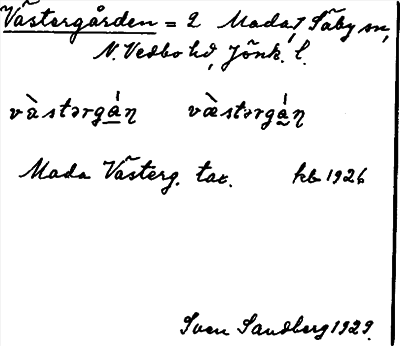 Västergården = 2 Mada, Säby sn,
N. Vedbo hd, Jönk. l.
vàstərgá̱ṇ væ̀stərgá̱ṇ
Mada Västerg. tax. kb 1926
Sven Sandberg 1929.